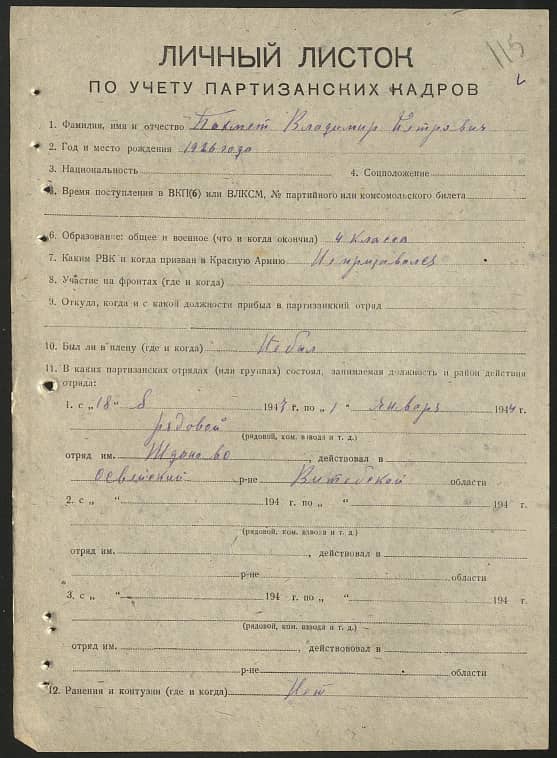 115
ЛИЧНЫЙ ЛИСТОК
ПО УЧЕТУ ПАРТИЗАНСКИХ КАДРОВ
1. Фамилия, имя и отчество Владимир Петрович
2. Год и место рождения 1926 года
3. Национальность 4. Соцположение
5. Время поступления в ВКП(б) или ВЛКСМ, № партийного или комсомольского билета
6. Образование: общее и военное (что и когда окончил) 4 класса
7. Каким РВК и когда призван в Красную Армию
8. Участие на фронтах (где и когда)
9. Откуда, когда и с какой должности прибыл в партизанский отряд
10. Был ли в плену (где и когда) Не был
11. В каких партизанских отрядах (или группах) состоял, занимаемая должность и район действия
отряда:
1. с „18" 8 1943 г. по „1" января 1944 г.
рядовой
(рядовой, ком. взвода и т. д.)
отряд им. , действовал в
Освейский р-не Витебской области
2. с „ " 194 г. по „ " 194 г.
(рядовой, ком. взвода и т. д.)
отряд им. , действовал в
р-не области
3. с „ " 194 г. по „ " 194 г.
(рядовой, ком. взвода и т. д.)
отряд им. , действовал в
р-не области
12. Ранения и контузии (где и когда) Нет